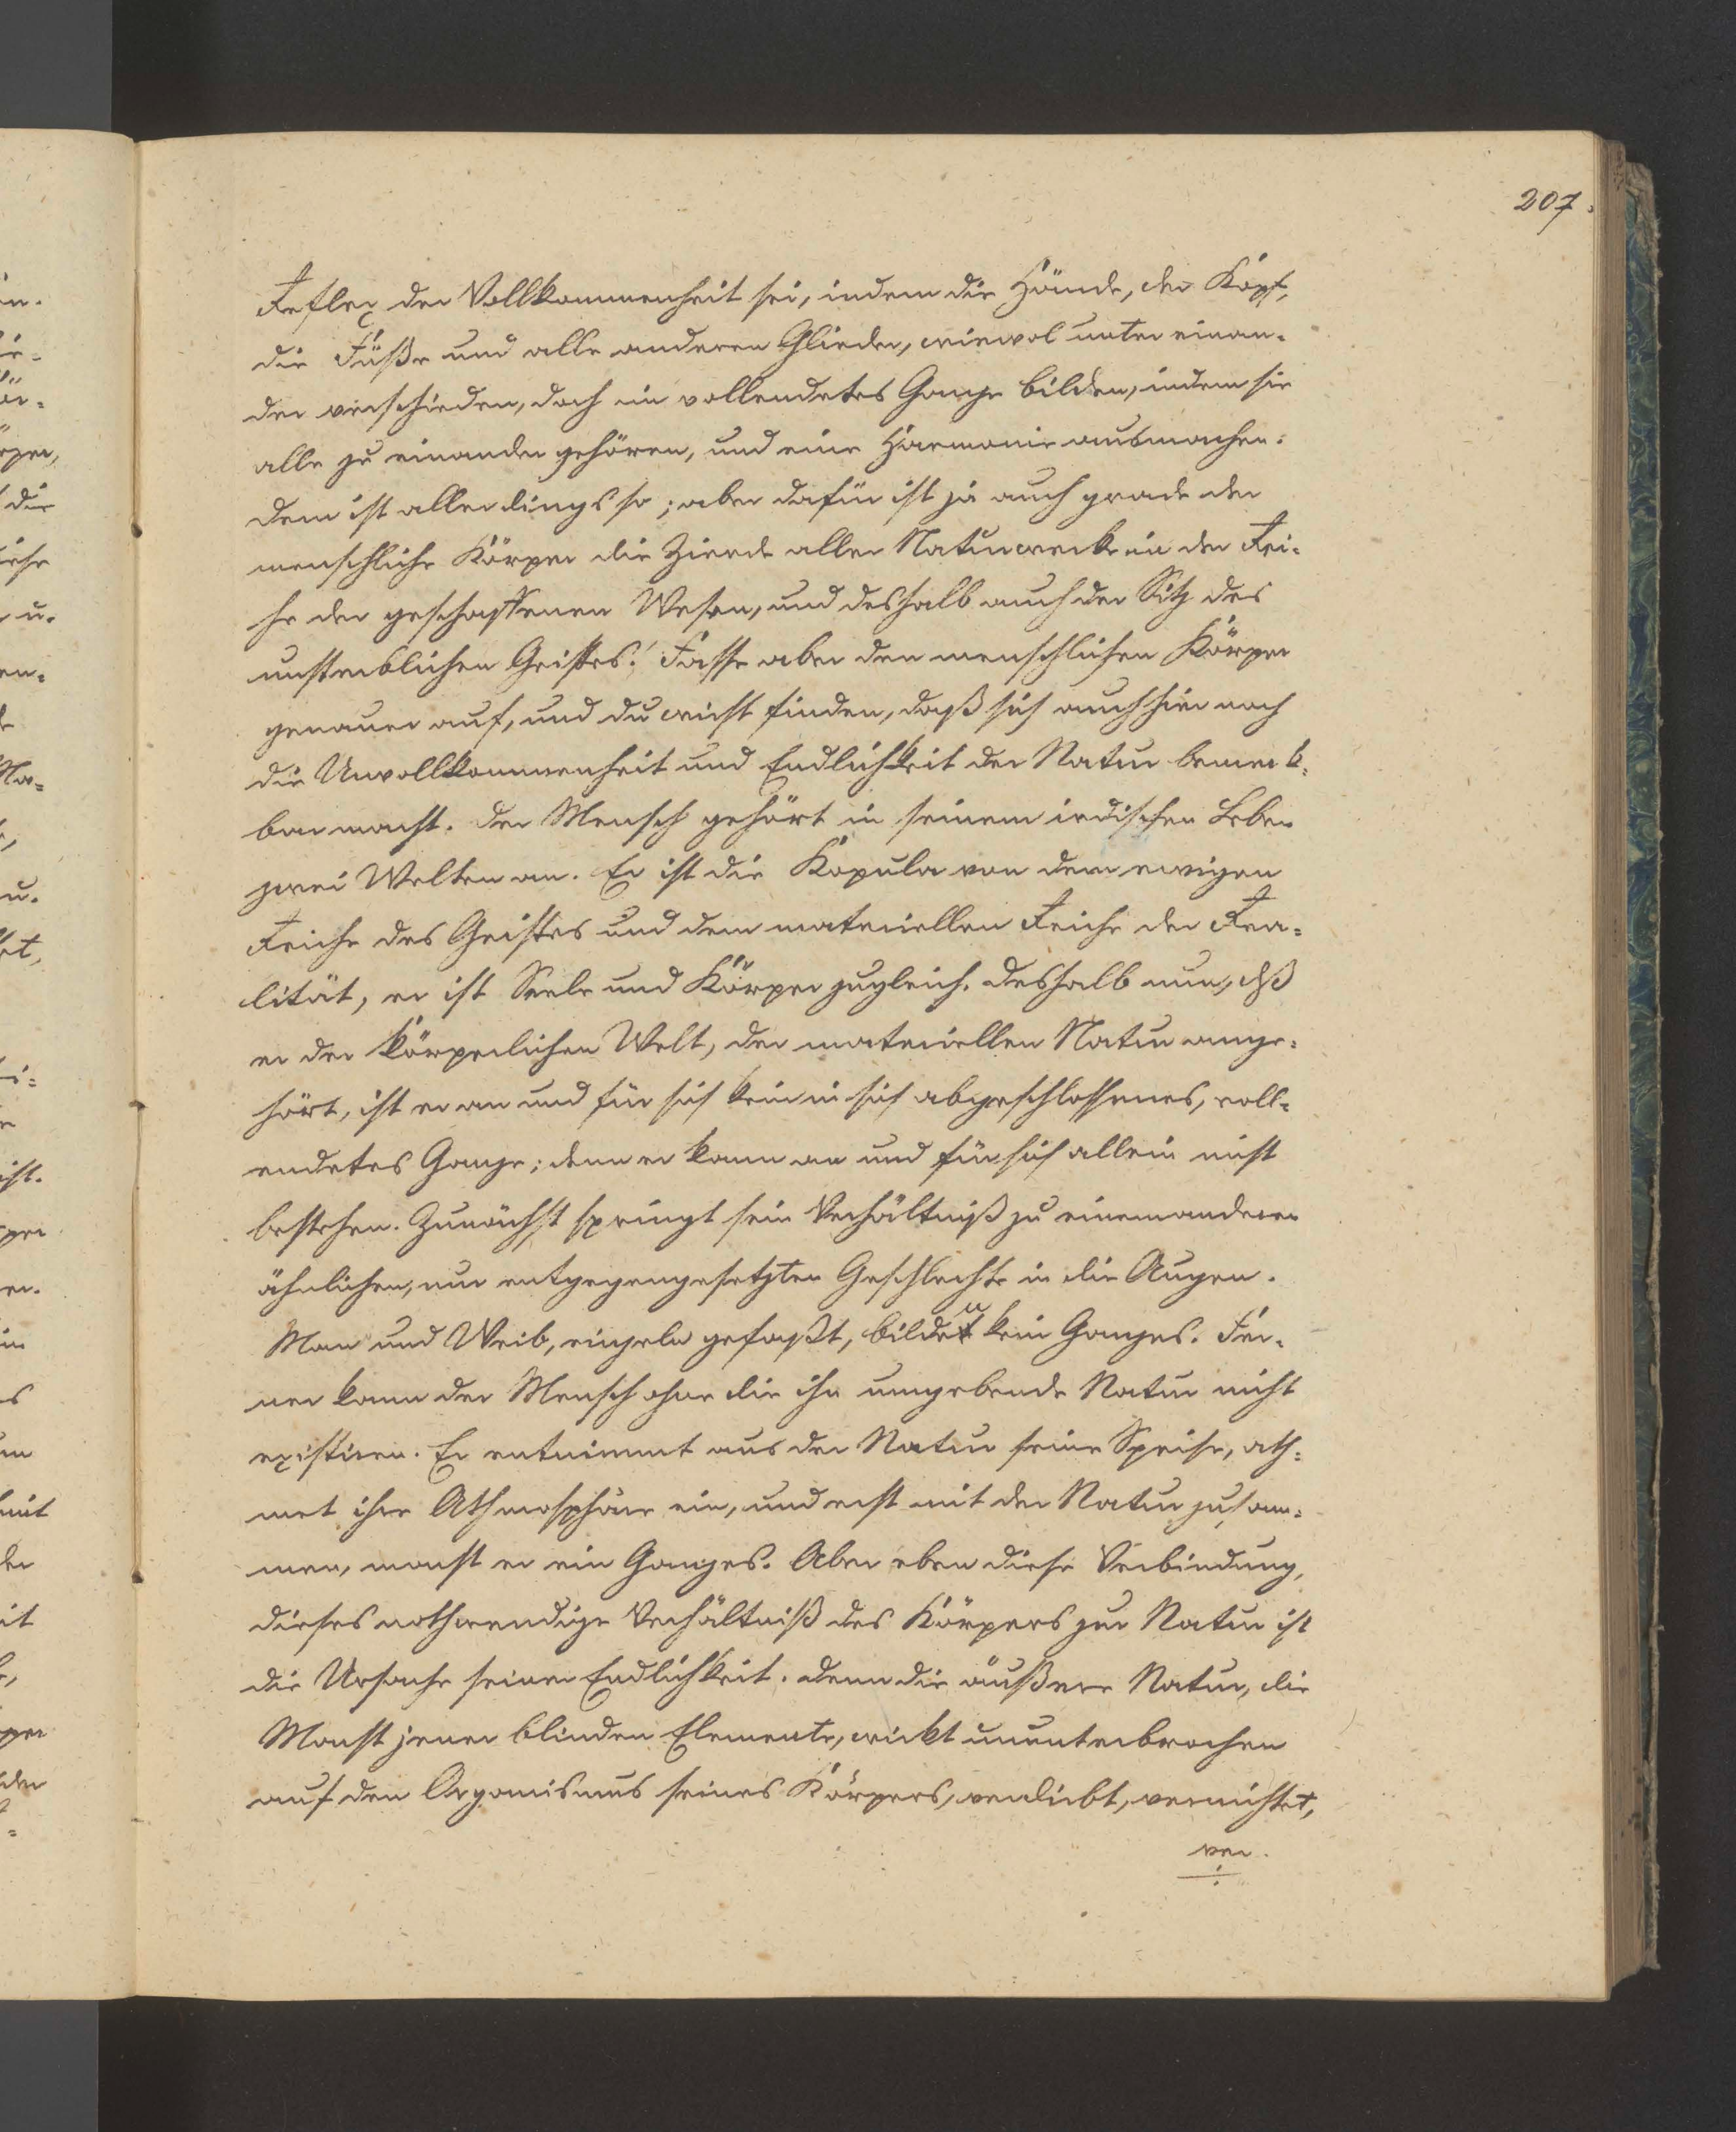 207.
Reflex der Vollkommenheit sei, indem die Hände, der Kopf,
die Füße und alle anderen Glieder, wiewol unter einan-
der verschieden, doch ein vollendetes Ganze bilden, indem sie
alle zu einander gehören, und eine Harmonie ausmachen.
Dem ist allerdings so; aber dafür ist ja auch grade der
menschliche Körper die Zierde aller Naturwerke in der Rei-
he der geschaffenen Wesen, und deshalb auch der Sitz des
unsterblichen Geistes! Fasse aber den menschlichen Körper
genauer auf, und du wirst finden, daß sich auch hier noch
die Unvollkommenheit und Endlichkeit der Natur bemerk-
bar macht. Der Mensch gehört in seinem irdischen Leben
zwei Welten an. Er ist die Kopula von dem ewigen
Reiche des Geistes und dem materiellen Reiche der Rea-
lität, er ist Seele und Körper zugleich. Deshalb nun, dß
er der körperlichen Welt, der materiellen Natur ange-
hört, ist er an und für sich kein in sich abgeschlossenes, voll-
endetes Ganze; denn er kann an und für sich allein nicht
bestehen. Zunächst springt sein Verhältniß zu einem anderen
ähnlichen, nur entgegengesetzten Geschlechte in die Augen.
Man und Weib, einzeln gefaßt, bilden kein Ganzes. Fer-
ner kann der Mensch ohne die ihn umgebende Natur nicht
existiren. Er entnimmt aus der Natur seine Speise, ath-
met ihre Athmosphäre ein, und erst mit der Natur zusam-
men, macht er ein Ganzes. Aber eben diese Verbindung,
dieses nothwendige Verhältniß des Körpers zur Natur ist
die Ursache seiner Endlichkeit. Denn die äußere Natur, die
Macht jener blinden Elemente, wirkt ununterbrochen
auf den Organismus seines Körpers, verliebt, vernichtet,
ver-